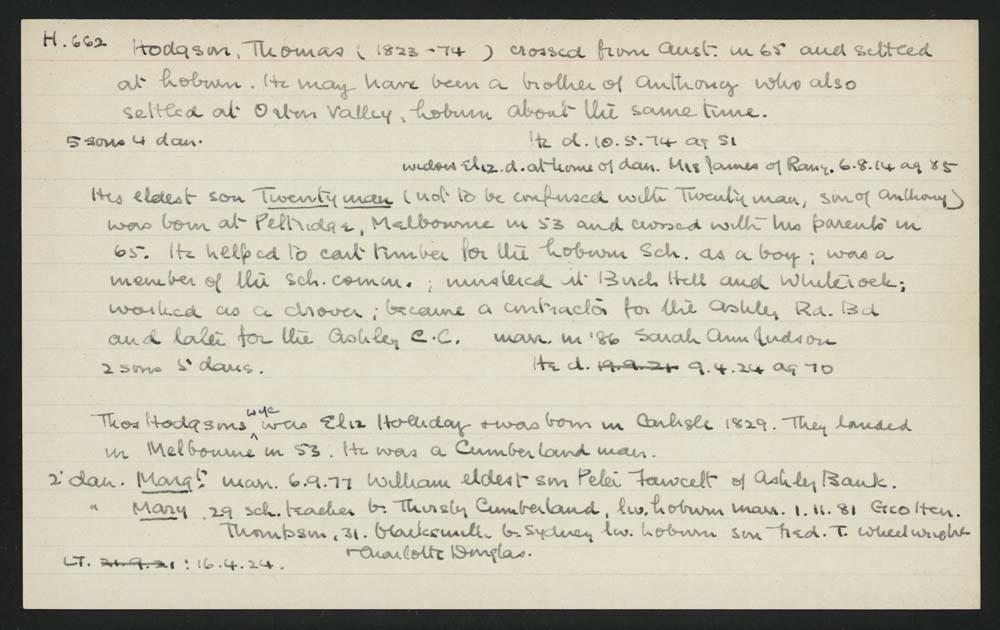 H.662 Hodgson, Thomas (1823-74) crossed from Aust. in 65 and settled
at Loburn. He may have been a brother of Anthony who also
settled at Orton Valley, Loburn about the same time.
5 sons 4 dau. He d. 10.5.74 ag 51
widow Eliz. d. at home of dau. Mrs James of Rang. 6.8.14 ag 85
His eldest son Twentyman (not to be confused with Twentyman, son of Anthony)
was born at Peltridge, Melbourne in 53 and crossed with his parents in
65. He helped to cart timber for the Loburn Sch. as a boy; was a
member of the Sch. comm.; mustered at Birch Hill and Whiterock;
worked as a drover; became a contractor for the Ashley Rd. Bd
and later for the Ashley C.C. marr. in '86 Sarah Ann Judson
2 sons 5 daus. He d. 19.9.21 9.4.24 ag 70
Thos Hodgson's wife was Eliz Holliday & was born in Carlisle 1829. They landed
in Melbourne in 53. He was a Cumberland man.
2' dau. Margt. marr. 6.9.77 William eldest son Peter Fawcett of Ashley Bank.
" Mary, 29 sch. teacher b. Thursby Cumberland, liv. Loburn marr. 1.11.81 Geo Hen.
Thompson, 31. blacksmith b. Sydney liv. Loburn son Fred. T. wheelwright
& Charlotte Douglas.
LT. 21.9.21 : 16.4.24.